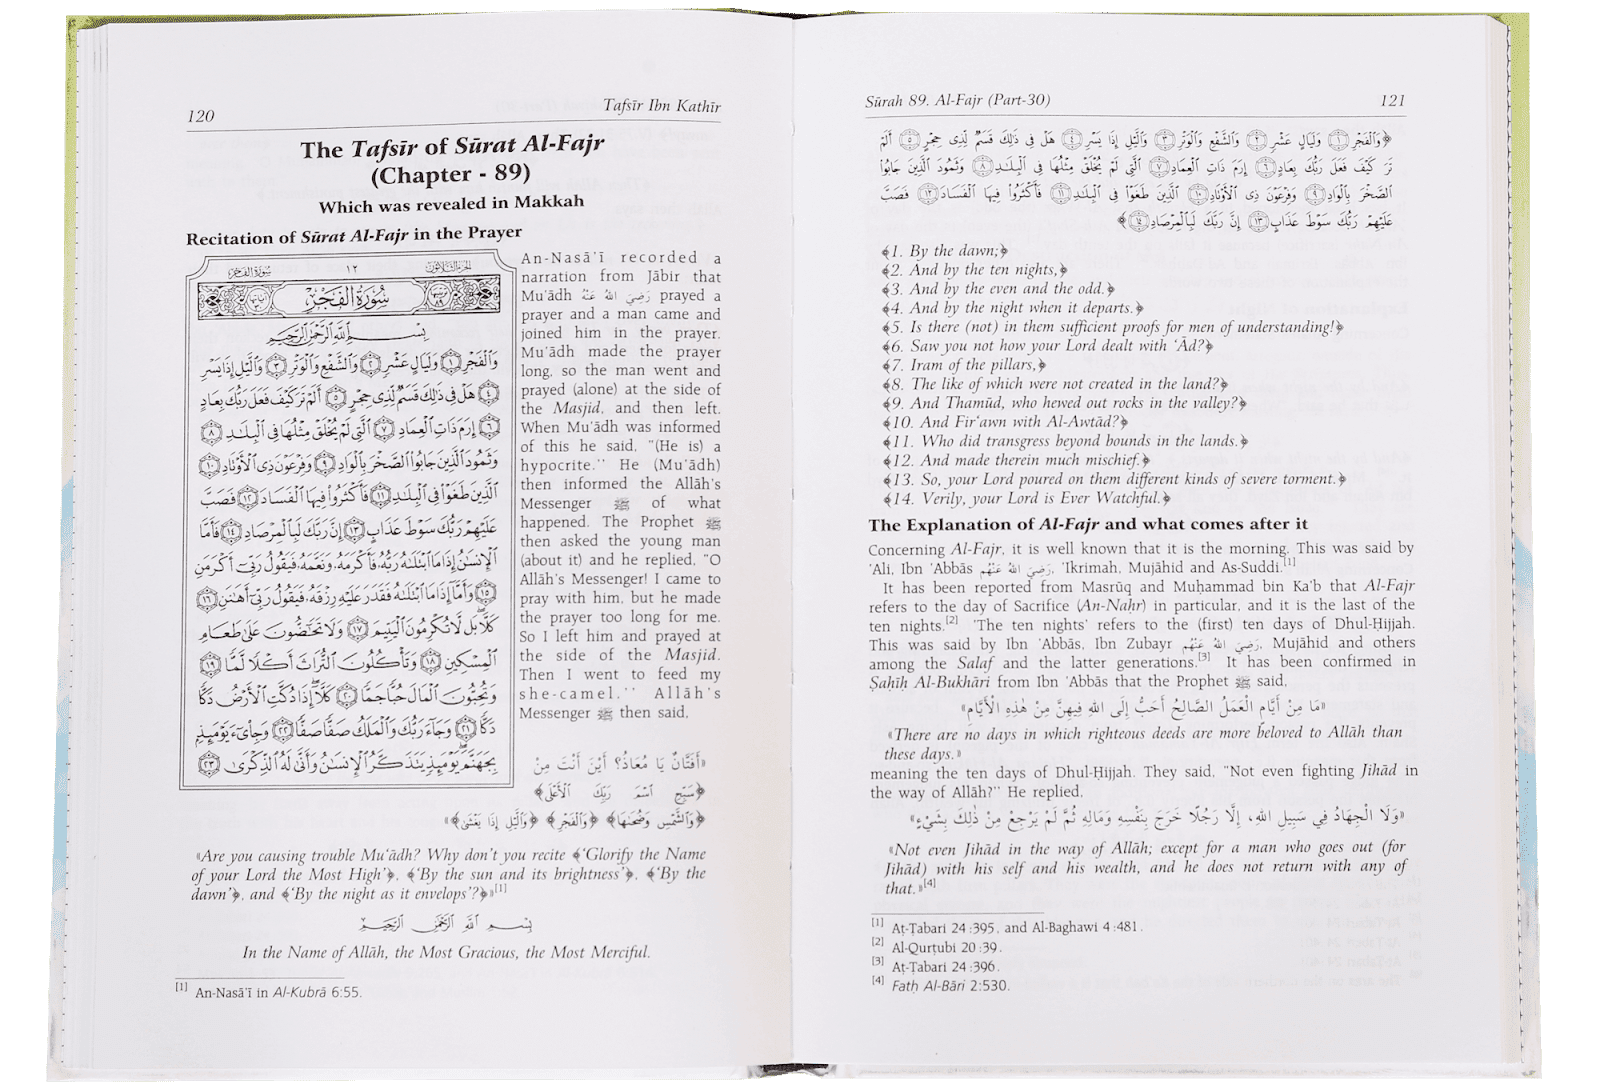 120
Tafsīr Ibn Kathīr
The Tafsīr of Sūrat Al-Fajr
(Chapter - 89)
Which was revealed in Makkah
Recitation of Sūrat Al-Fajr in the Prayer
سُورَةُ الفَجْر
١٢
الجزء الثلاثون
سُورَةُ الْفَجْرِ
بِسْمِ اللَّهِ الرَّحْمَٰنِ الرَّحِيمِ
وَالْفَجْرِ ١ وَلَيَالٍ عَشْرٍ ٢ وَالشَّفْعِ وَالْوَتْرِ ٣ وَاللَّيْلِ إِذَا يَسْرِ
٤ هَلْ فِي ذَٰلِكَ قَسَمٌ لِّذِي حِجْرٍ ٥ أَلَمْ تَرَ كَيْفَ فَعَلَ رَبُّكَ بِعَادٍ
٦ إِرَمَ ذَاتِ الْعِمَادِ ٧ الَّتِي لَمْ يُخْلَقْ مِثْلُهَا فِي الْبِلَادِ ٨
وَثَمُودَ الَّذِينَ جَابُوا الصَّخْرَ بِالْوَادِ ٩ وَفِرْعَوْنَ ذِي الْأَوْتَادِ ١٠
الَّذِينَ طَغَوْا فِي الْبِلَادِ ١١ فَأَكْثَرُوا فِيهَا الْفَسَادَ ١٢ فَصَبَّ
عَلَيْهِمْ رَبُّكَ سَوْطَ عَذَابٍ ١٣ إِنَّ رَبَّكَ لَبِالْمِرْصَادِ ١٤ فَأَمَّا
الْإِنسَانُ إِذَا مَا ابْتَلَاهُ رَبُّهُ فَأَكْرَمَهُ وَنَعَّمَهُ فَيَقُولُ رَبِّي أَكْرَمَنِ
١٥ وَأَمَّا إِذَا مَا ابْتَلَاهُ فَقَدَرَ عَلَيْهِ رِزْقَهُ فَيَقُولُ رَبِّي أَهَانَنِ ١٦
كَلَّا بَل لَّا تُكْرِمُونَ الْيَتِيمَ ١٧ وَلَا تَحَاضُّونَ عَلَىٰ طَعَامِ
الْمِسْكِينِ ١٨ وَتَأْكُلُونَ التُّرَاثَ أَكْلًا لَّمًّا ١٩
وَتُحِبُّونَ الْمَالَ حُبًّا جَمًّا ٢٠ كَلَّا إِذَا دُكَّتِ الْأَرْضُ دَكًّا
دَكًّا ٢١ وَجَاءَ رَبُّكَ وَالْمَلَكُ صَفًّا صَفًّا ٢٢ وَجِايءَ يَوْمَئِذٍ
بِجَهَنَّمَ يَوْمَئِذٍ يَتَذَكَّرُ الْإِنسَانُ وَأَنَّىٰ لَهُ الذِّكْرَىٰ ٢٣
An-Nasā'ī recorded a
narration from Jābir that
Mu'ādh رَضِيَ اللهُ عَنْهُ prayed a
prayer and a man came and
joined him in the prayer.
Mu'ādh made the prayer
long, so the man went and
prayed (alone) at the side of
the Masjid, and then left.
When Mu'ādh was informed
of this he said, "(He is) a
hypocrite." He (Mu'ādh)
then informed the Allāh's
Messenger ﷺ of what
happened. The Prophet ﷺ
then asked the young man
(about it) and he replied, "O
Allāh's Messenger! I came to
pray with him, but he made
the prayer too long for me.
So I left him and prayed at
the side of the Masjid.
Then I went to feed my
she-camel." Allāh's
Messenger ﷺ then said,
«أَفَتَّانٌ يَا مُعَاذُ؟ أَيْنَ أَنْتَ مِنْ
﴿سَبِّحِ اسْمَ رَبِّكَ الْأَعْلَى﴾
﴿وَالشَّمْسِ وَضُحَاهَا﴾ ﴿وَالْفَجْرِ﴾ ﴿وَاللَّيْلِ إِذَا يَغْشَىٰ﴾»
«Are you causing trouble Mu'ādh? Why don't you recite ﴾'Glorify the Name
of your Lord the Most High'﴿, ﴾'By the sun and its brightness'﴿, ﴾'By the
dawn'﴿, and ﴾'By the night as it envelops'?﴿»[1]
بِسْمِ اللَّهِ الرَّحْمَٰنِ الرَّحِيمِ
In the Name of Allāh, the Most Gracious, the Most Merciful.
[1] An-Nasā'ī in Al-Kubrā 6:55.
Sūrah 89. Al-Fajr (Part-30)
121
﴿وَالْفَجْرِ ١ وَلَيَالٍ عَشْرٍ ٢ وَالشَّفْعِ وَالْوَتْرِ ٣ وَاللَّيْلِ إِذَا يَسْرِ ٤ هَلْ فِي ذَٰلِكَ قَسَمٌ لِّذِي حِجْرٍ ٥ أَلَمْ
تَرَ كَيْفَ فَعَلَ رَبُّكَ بِعَادٍ ٦ إِرَمَ ذَاتِ الْعِمَادِ ٧ الَّتِي لَمْ يُخْلَقْ مِثْلُهَا فِي الْبِلَادِ ٨ وَثَمُودَ الَّذِينَ جَابُوا
الصَّخْرَ بِالْوَادِ ٩ وَفِرْعَوْنَ ذِي الْأَوْتَادِ ١٠ الَّذِينَ طَغَوْا فِي الْبِلَادِ ١١ فَأَكْثَرُوا فِيهَا الْفَسَادَ ١٢ فَصَبَّ
عَلَيْهِمْ رَبُّكَ سَوْطَ عَذَابٍ ١٣ إِنَّ رَبَّكَ لَبِالْمِرْصَادِ ١٤﴾
﴾1. By the dawn;﴿
﴾2. And by the ten nights,﴿
﴾3. And by the even and the odd.﴿
﴾4. And by the night when it departs.﴿
﴾5. Is there (not) in them sufficient proofs for men of understanding!﴿
﴾6. Saw you not how your Lord dealt with 'Ād?﴿
﴾7. Iram of the pillars,﴿
﴾8. The like of which were not created in the land?﴿
﴾9. And Thamūd, who hewed out rocks in the valley?﴿
﴾10. And Fir'awn with Al-Awtād?﴿
﴾11. Who did transgress beyond bounds in the lands.﴿
﴾12. And made therein much mischief.﴿
﴾13. So, your Lord poured on them different kinds of severe torment.﴿
﴾14. Verily, your Lord is Ever Watchful.﴿
The Explanation of Al-Fajr and what comes after it
Concerning Al-Fajr, it is well known that it is the morning. This was said by
'Ali, Ibn 'Abbās رَضِيَ اللهُ عَنْهُم, 'Ikrimah, Mujāhid and As-Suddi.[1]
It has been reported from Masrūq and Muḥammad bin Ka'b that Al-Fajr
refers to the day of Sacrifice (An-Naḥr) in particular, and it is the last of the
ten nights.[2] 'The ten nights' refers to the (first) ten days of Dhul-Ḥijjah.
This was said by Ibn 'Abbās, Ibn Zubayr رَضِيَ اللهُ عَنْهُم, Mujāhid and others
among the Salaf and the latter generations.[3] It has been confirmed in
Ṣaḥīḥ Al-Bukhāri from Ibn 'Abbās that the Prophet ﷺ said,
«مَا مِنْ أَيَّامٍ الْعَمَلُ الصَّالِحُ أَحَبُّ إِلَى اللهِ فِيهِنَّ مِنْ هٰذِهِ الْأَيَّامِ»
«There are no days in which righteous deeds are more beloved to Allāh than
these days.»
meaning the ten days of Dhul-Ḥijjah. They said, "Not even fighting Jihād in
the way of Allāh?" He replied,
«وَلَا الْجِهَادُ فِي سَبِيلِ اللهِ، إِلَّا رَجُلًا خَرَجَ بِنَفْسِهِ وَمَالِهِ ثُمَّ لَمْ يَرْجِعْ مِنْ ذٰلِكَ بِشَيْءٍ»
«Not even Jihād in the way of Allāh; except for a man who goes out (for
Jihād) with his self and his wealth, and he does not return with any of
that.»[4]
[1] Aṭ-Ṭabari 24:395, and Al-Baghawi 4:481.
[2] Al-Qurṭubi 20:39.
[3] Aṭ-Ṭabari 24:396.
[4] Fatḥ Al-Bāri 2:530.